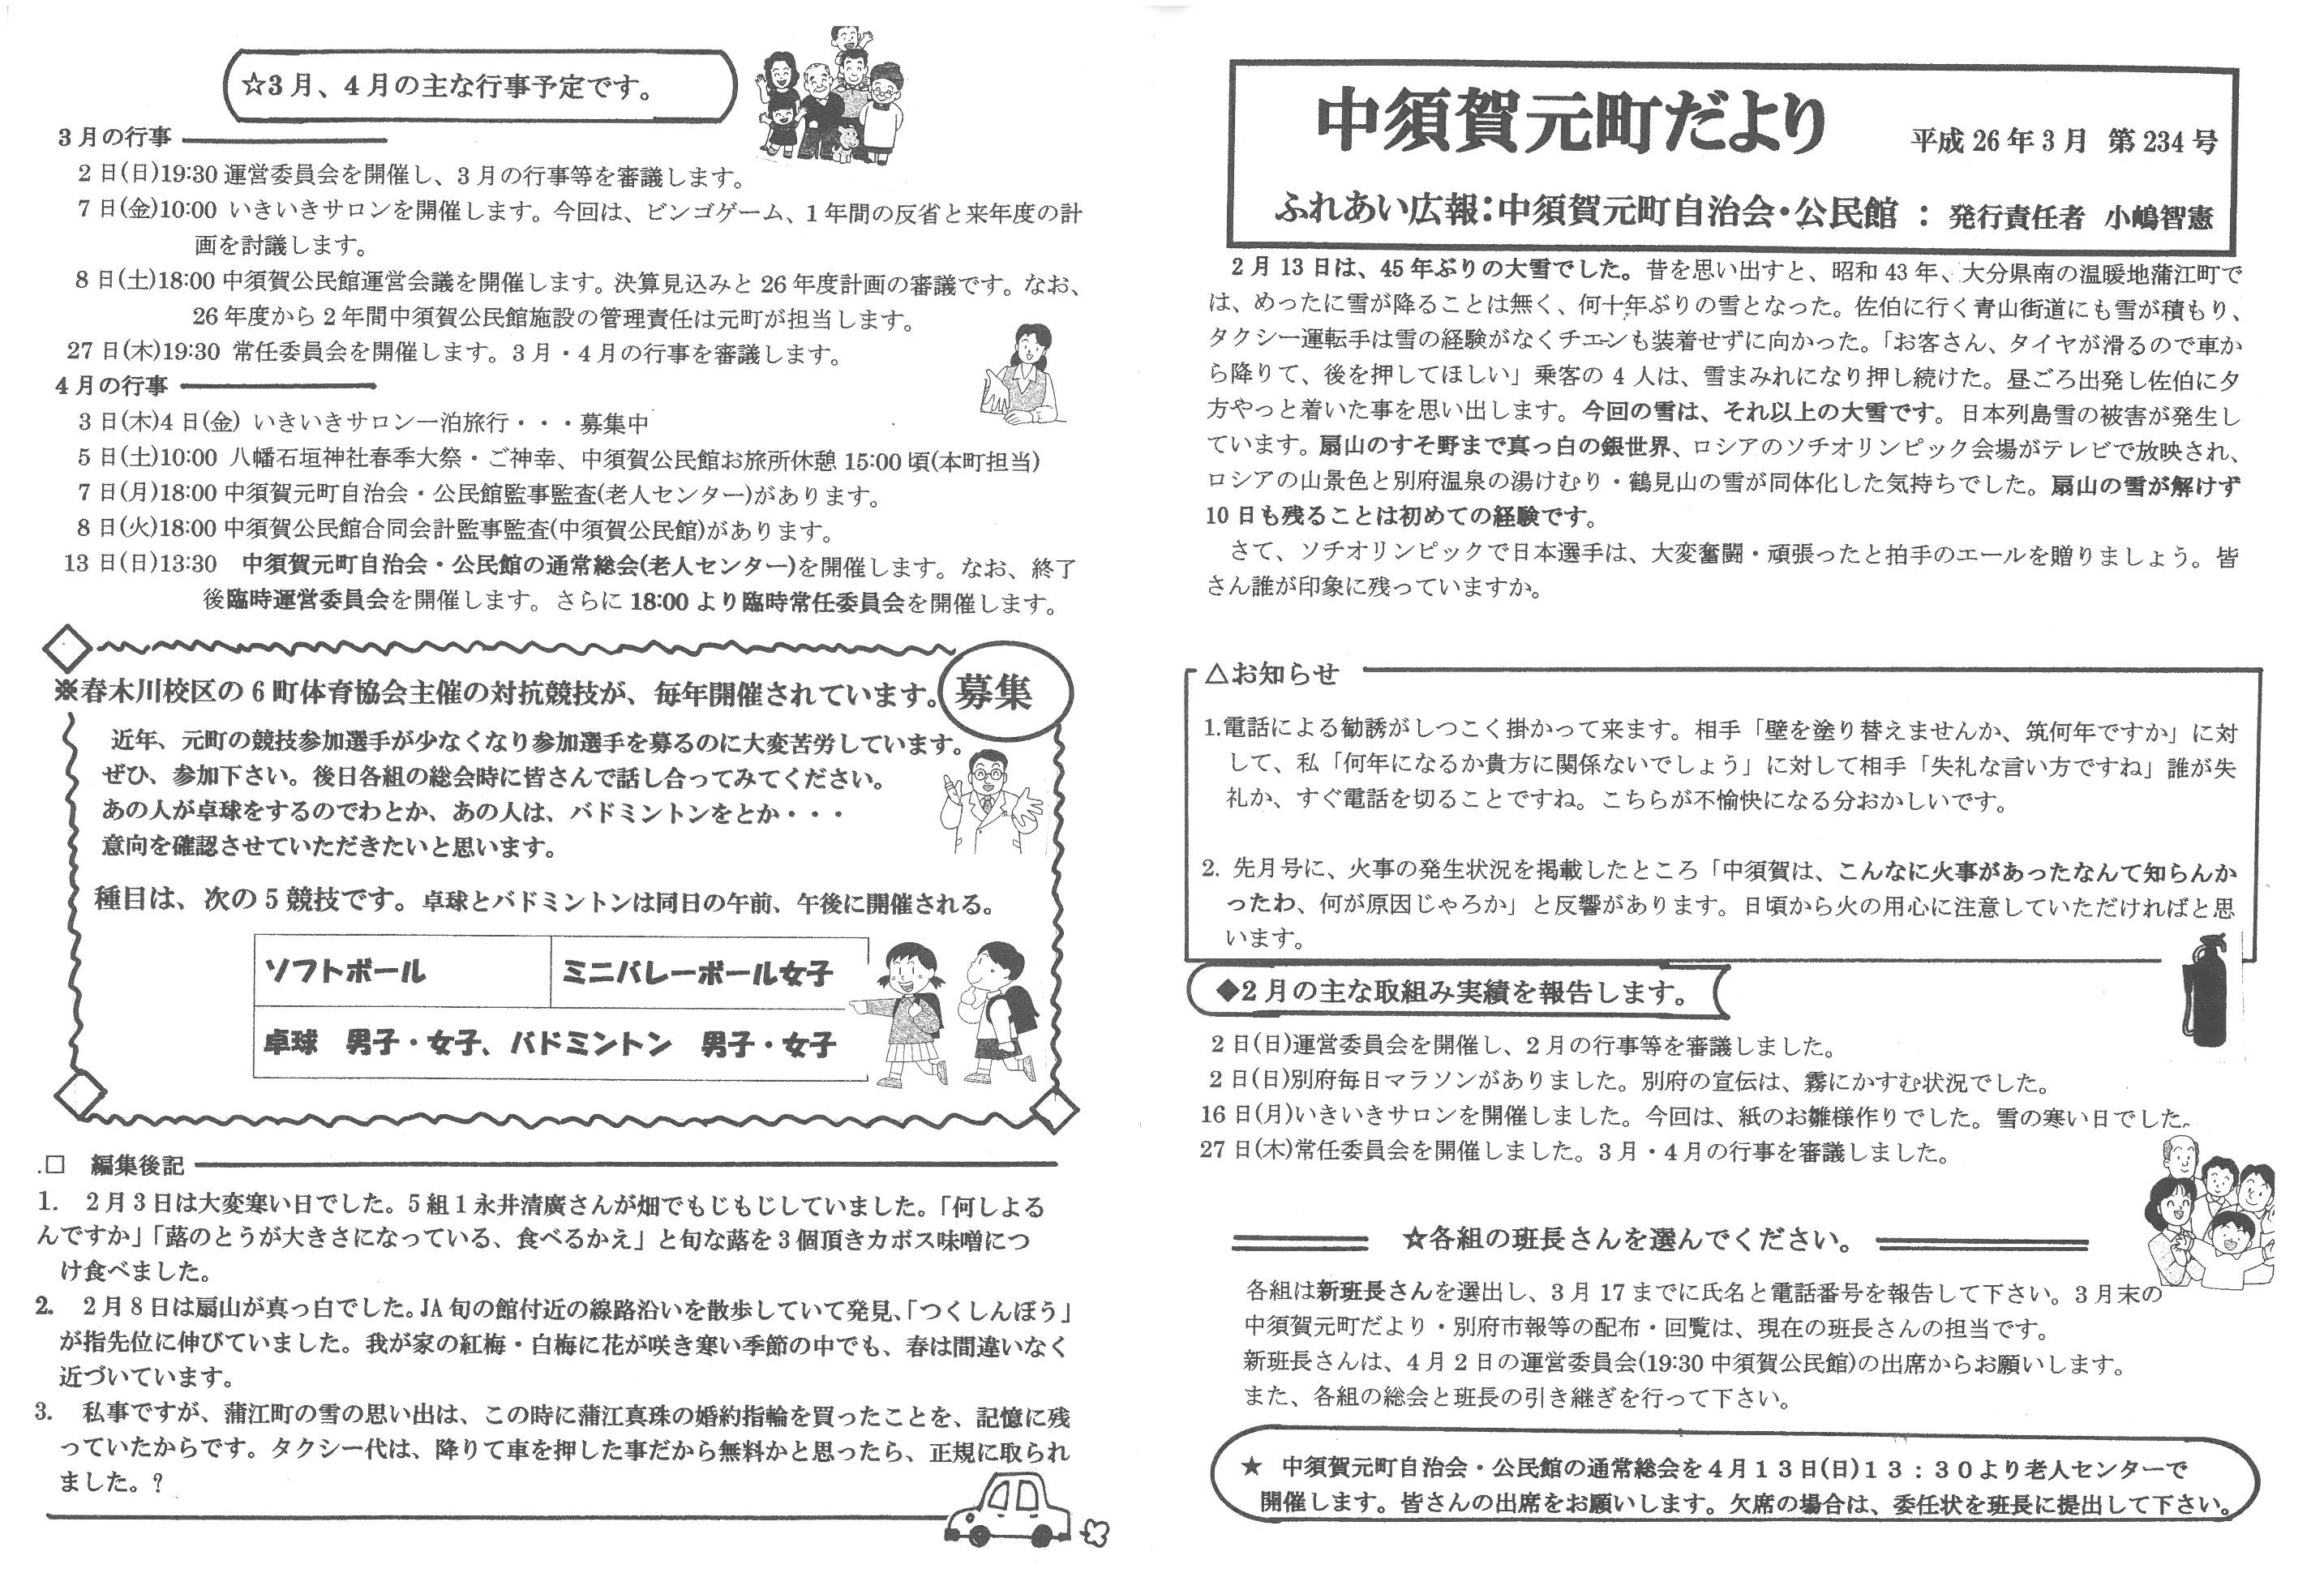 中須賀元町だより 平成26年3月 第234号
ふれあい広報：中須賀元町自治会・公民館 ： 発行責任者 小嶋智憲
2月13日は、45年ぶりの大雪でした。昔を思い出すと、昭和43年、大分県南の温暖地蒲江町で
は、めったに雪が降ることは無く、何十年ぶりの雪となった。佐伯に行く青山街道にも雪が積もり、
タクシー運転手は雪の経験がなくチエンも装着せずに向かった。「お客さん、タイヤが滑るので車か
ら降りて、後を押してほしい」乗客の4人は、雪まみれになり押し続けた。昼ごろ出発し佐伯に夕
方やっと着いた事を思い出します。今回の雪は、それ以上の大雪です。日本列島雪の被害が発生し
ています。扇山のすそ野まで真っ白の銀世界、ロシアのソチオリンピック会場がテレビで放映され、
ロシアの山景色と別府温泉の湯けむり・鶴見山の雪が同体化した気持ちでした。扇山の雪が解けず
10日も残ることは初めての経験です。
さて、ソチオリンピックで日本選手は、大変奮闘・頑張ったと拍手のエールを贈りましょう。皆
さん誰が印象に残っていますか。
△お知らせ
1.電話による勧誘がしつこく掛かって来ます。相手「壁を塗り替えませんか、筑何年ですか」に対
して、私「何年になるか貴方に関係ないでしょう」に対して相手「失礼な言い方ですね」誰が失
礼か、すぐ電話を切ることですね。こちらが不愉快になる分おかしいです。
2. 先月号に、火事の発生状況を掲載したところ「中須賀は、こんなに火事があったなんて知らんか
ったわ、何が原因じゃろか」と反響があります。日頃から火の用心に注意していただければと思
います。
◆2月の主な取組み実績を報告します。
2日(日)運営委員会を開催し、2月の行事等を審議しました。
2日(日)別府毎日マラソンがありました。別府の宣伝は、霧にかすむ状況でした。
16日(月)いきいきサロンを開催しました。今回は、紙のお雛様作りでした。雪の寒い日でした。
27日(木)常任委員会を開催しました。3月・4月の行事を審議しました。
☆各組の班長さんを選んでください。
各組は新班長さんを選出し、3月17までに氏名と電話番号を報告して下さい。3月末の
中須賀元町だより・別府市報等の配布・回覧は、現在の班長さんの担当です。
新班長さんは、4月2日の運営委員会(19:30中須賀公民館)の出席からお願いします。
また、各組の総会と班長の引き継ぎを行って下さい。
★ 中須賀元町自治会・公民館の通常総会を4月13日(日)13：30より老人センターで
開催します。皆さんの出席をお願いします。欠席の場合は、委任状を班長に提出して下さい。
☆3月、4月の主な行事予定です。
3月の行事
2日(日)19:30運営委員会を開催し、3月の行事等を審議します。
7日(金)10:00 いきいきサロンを開催します。今回は、ビンゴゲーム、1年間の反省と来年度の計
画を討議します。
8日(土)18:00中須賀公民館運営会議を開催します。決算見込みと26年度計画の審議です。なお、
26年度から2年間中須賀公民館施設の管理責任は元町が担当します。
27日(木)19:30 常任委員会を開催します。3月・4月の行事を審議します。
4月の行事
3日(木)4日(金) いきいきサロン一泊旅行・・・募集中
5日(土)10:00 八幡石垣神社春季大祭・ご神幸、中須賀公民館お旅所休憩15:00頃(本町担当)
7日(月)18:00中須賀元町自治会・公民館監事監査(老人センター)があります。
8日(火)18:00中須賀公民館合同会計監事監査(中須賀公民館)があります。
13日(日)13:30 中須賀元町自治会・公民館の通常総会(老人センター)を開催します。なお、終了
後臨時運営委員会を開催します。さらに18:00より臨時常任委員会を開催します。
※春木川校区の6町体育協会主催の対抗競技が、毎年開催されています。
募集
近年、元町の競技参加選手が少なくなり参加選手を募るのに大変苦労しています。
ぜひ、参加下さい。後日各組の総会時に皆さんで話し合ってみてください。
あの人が卓球をするのでわとか、あの人は、バドミントンをとか・・・
意向を確認させていただきたいと思います。
種目は、次の5競技です。卓球とバドミントンは同日の午前、午後に開催される。
ソフトボール ミニバレーボール女子
卓球 男子・女子、バドミントン 男子・女子
.□ 編集後記
1. 2月3日は大変寒い日でした。5組1永井清廣さんが畑でもじもじしていました。「何しよる
んですか」「蕗のとうが大きさになっている、食べるかえ」と旬な蕗を3個頂きカボス味噌につ
け食べました。
2. 2月8日は扇山が真っ白でした。JA旬の館付近の線路沿いを散歩していて発見、「つくしんぼう」
が指先位に伸びていました。我が家の紅梅・白梅に花が咲き寒い季節の中でも、春は間違いなく
近づいています。
3. 私事ですが、蒲江町の雪の思い出は、この時に蒲江真珠の婚約指輪を買ったことを、記憶に残
っていたからです。タクシー代は、降りて車を押した事だから無料かと思ったら、正規に取られ
ました。?